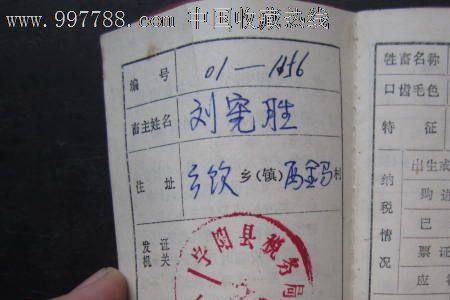 www.997788.com 中国收藏热线
编号 01—1456
畜主姓名 刘宪胜
住址 乡饮乡(镇) 村
发证机关
宁阳县税务局
牲畜名称
口齿毛色
特征
纳税情况
出生成
购进
已
票证
应